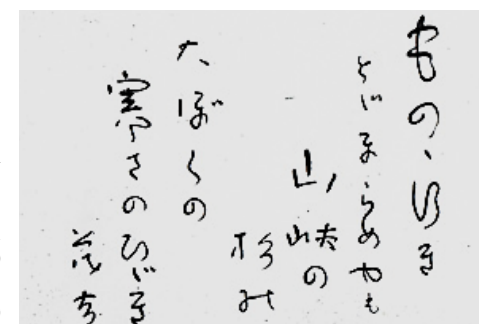 ものゝ行き
とゞまらめやも
山峡の
杉の
大ぼくの
寒さのひゞき
茂吉